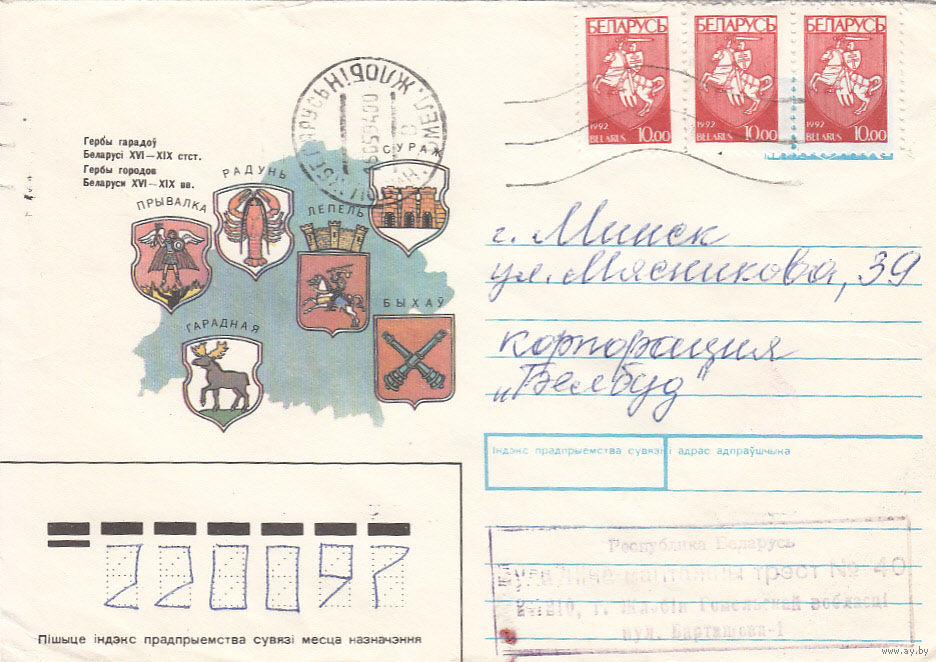 БЕЛАРУСЬ БЕЛАРУСЬ БЕЛАРУСЬ
1992 10.00 1992 10.00 1992 10.00
BELARUS BELARUS BELARUS
ЖЛОБІН
Гербы гарадоў
Беларусі XVI—XIX стст.
Гербы городов
Беларуси XVI—XIX вв.
СУРАЖ
РАДУНЬ
ПРЫВАЛКА
ЛЕПЕЛЬ
БЫХАЎ
ГАРАДНАЯ
г. Минск
ул. Мясникова, 39
корпорация
„Белбуд"
Індэкс прадпрыемства сувязі і адрас адпраўшчыка
22009?
Пішыце індэкс прадпрыемства сувязі месца назначэння
Рэспубліка Беларусь
трэст № 40
г. Жлобін Гомельскай вобласці
вул.
www.ay.by